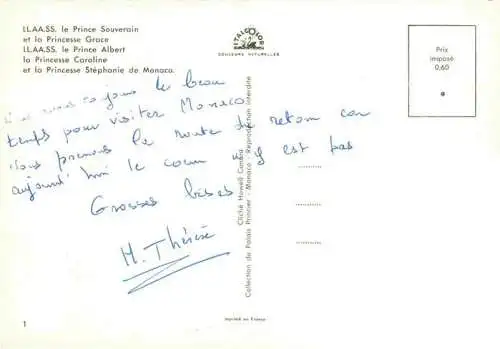 LL.AA.SS. le Prince Souverain
et la Princesse Grace
LL.AA.SS. le Prince Albert
la Princesse Caroline
et la Princesse Stéphanie de Monaco.
ITALCOLOR
COULEURS NATURELLES
Prix
imposé
0,60
toujours le beau
temps pour visiter Monaco
Nous prenons la route du retour car
aujourd'hui le cœur n'y est pas
Grosses bises
M. Thérèse
Cliché Howell Conant
Collection de Palais Princier - Monaco - Reproduction interdite
1
Imprimé en France